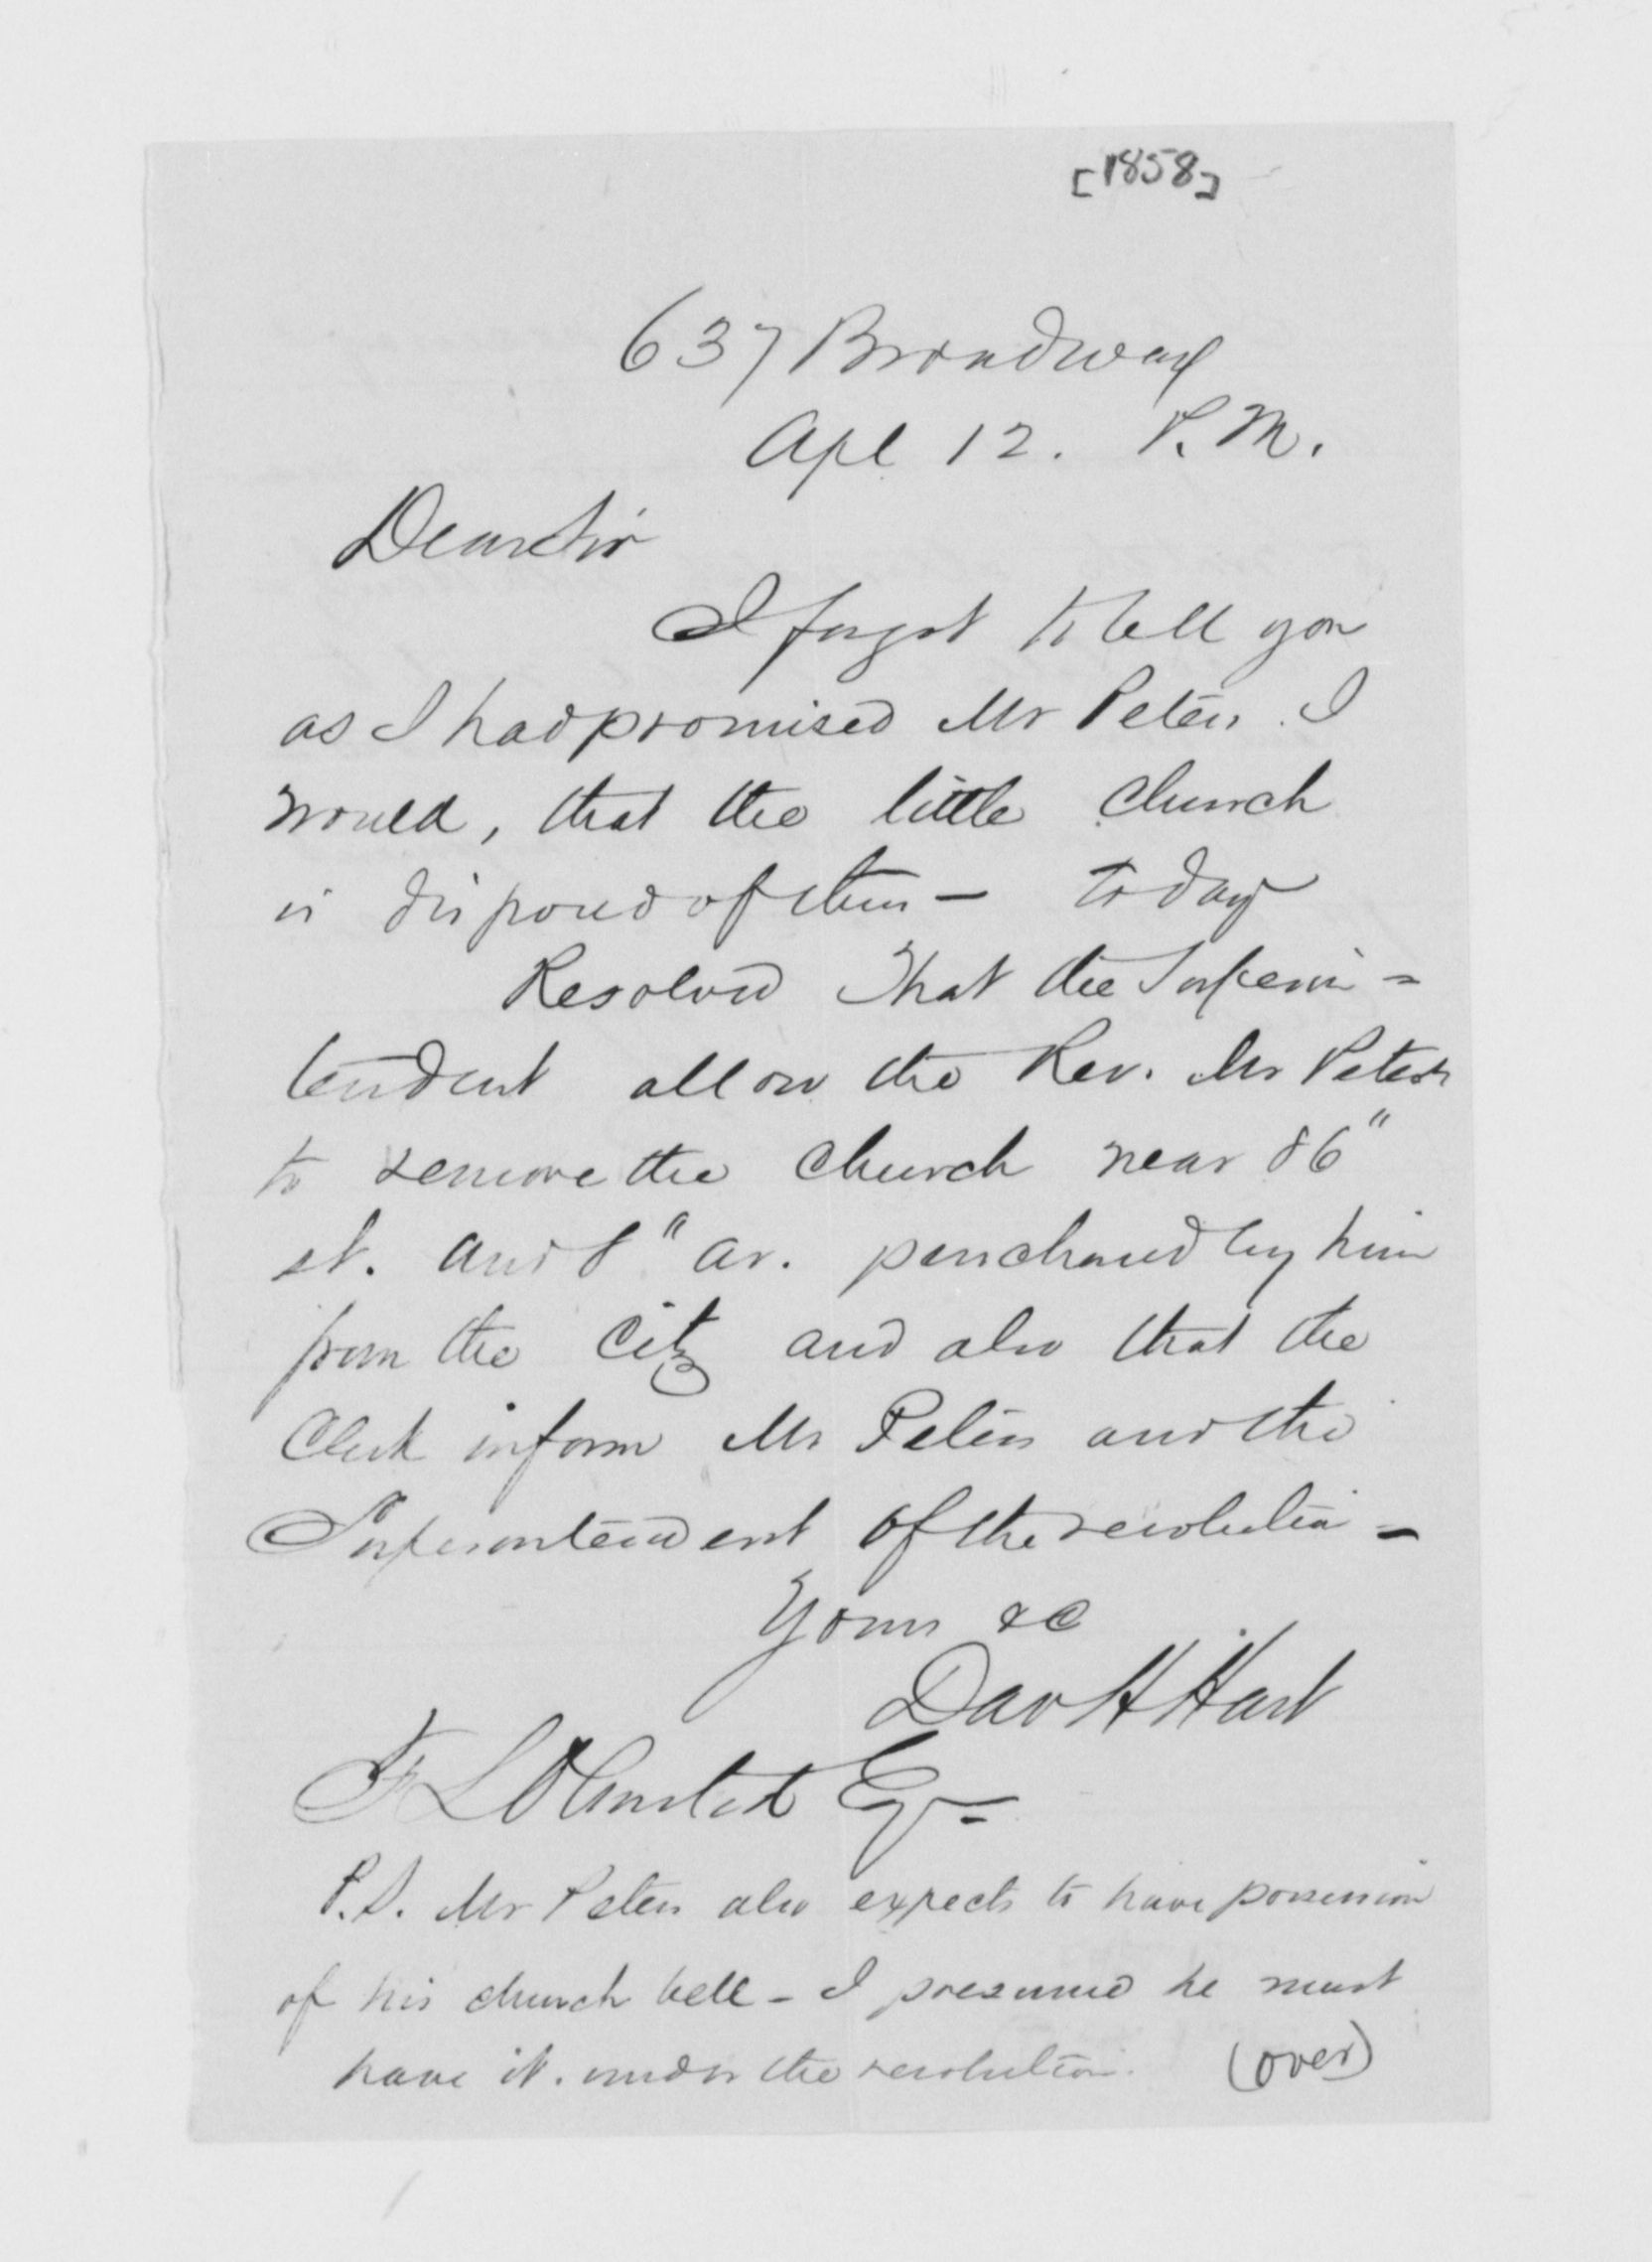 [1858]
637 Broadway
Apl 12. P.M.
Dear Sir
I forgot to tell you
as I had promised Mr Peters. I
would, that the little church
is disposed of thus - to day
Resolved That the Superin=
tendent allow the Rev. Mr Peters
to remove the church near 86"
st. and 8" av. purchased by him
from the City and also that the
Clerk inform Mr Peters and the
Superintendent of the resolution -
Yours &c
Dav H Hart
F L Olmsted Esq-
P.S. Mr Peters also expects to have possession
of his church bell - I presume he must
have it. under the resolution.
(over)